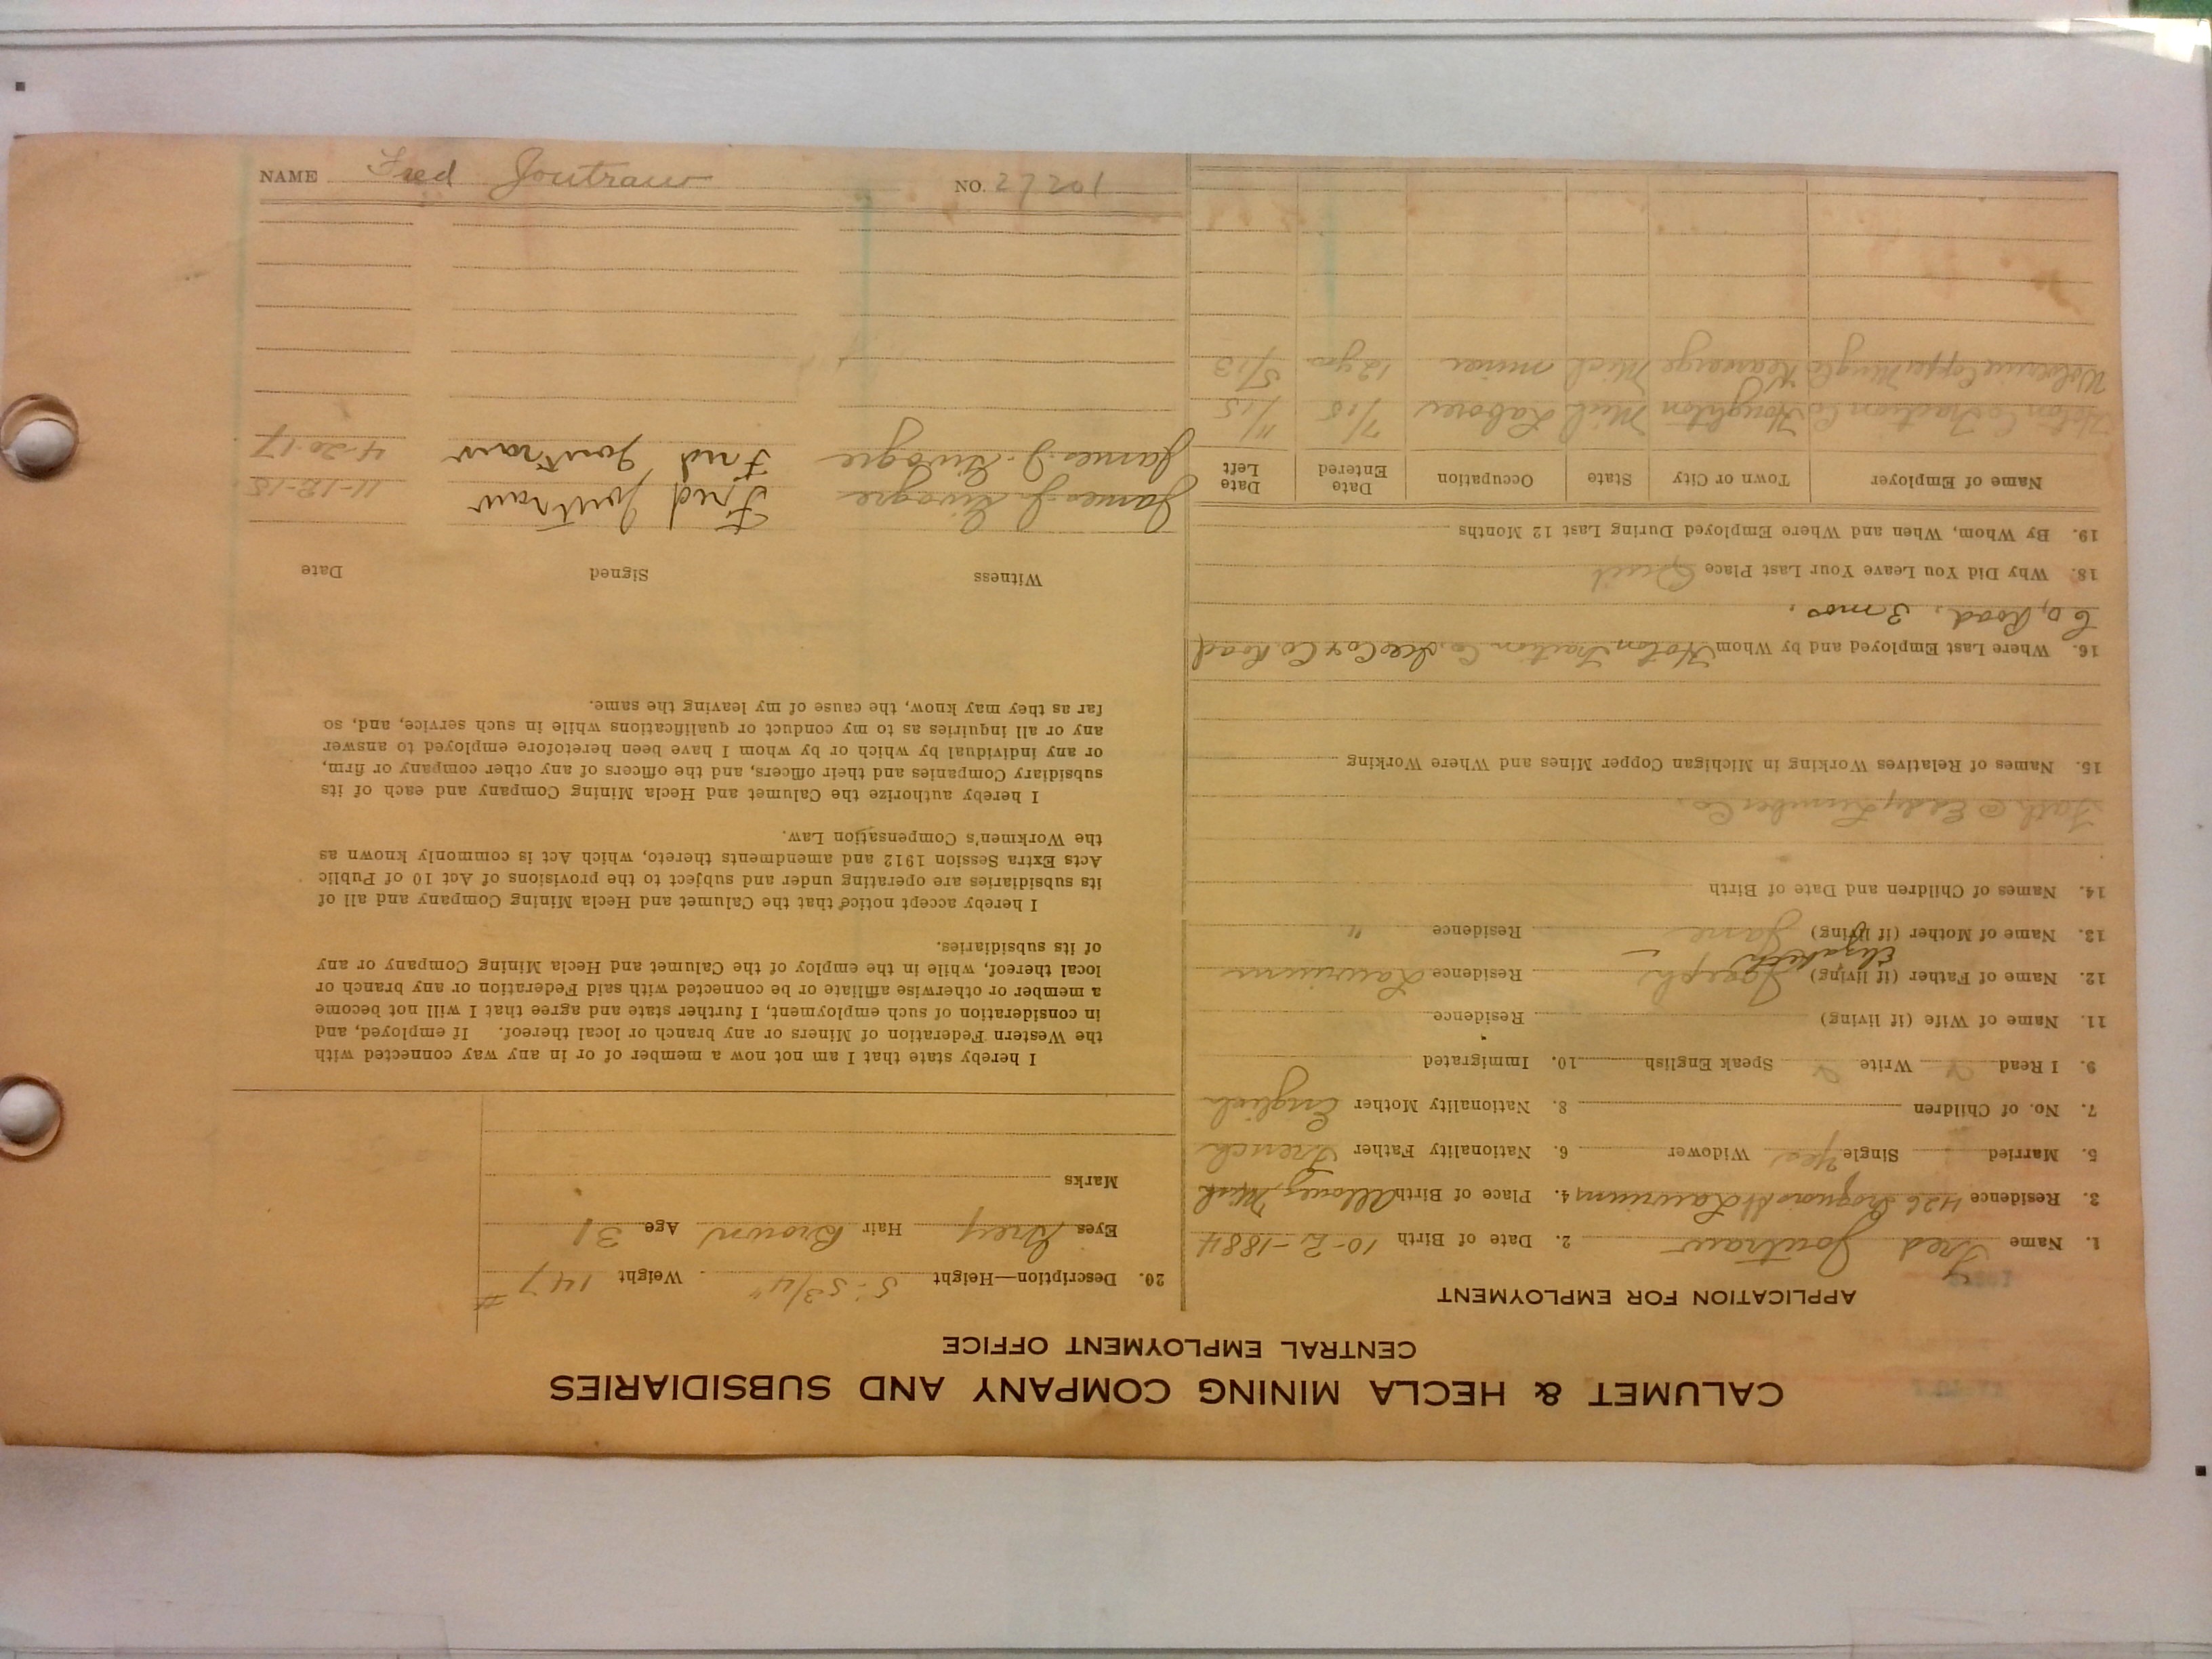 CALUMET & HECLA MINING COMPANY AND SUBSIDIARIES
CENTRAL EMPLOYMENT OFFICE
APPLICATION FOR EMPLOYMENT
1. Name Fred Joutraw 2. Date of Birth 10-2-1884
3. Residence 426 Iroquois St Laurium 4. Place of Birth Allouez Mich
5. Married Single Yes Widower 6. Nationality Father French
7. No. of Children 8. Nationality Mother English
9. I Read Write Speak English 10. Immigrated
11. Name of Wife (if living) Residence
12. Name of Father (if living) Joseph Residence Laurium
Elizabeth
13. Name of Mother (if living) Jane Residence "
14. Names of Children and Date of Birth
Eady Lumber Co.
15. Names of Relatives Working in Michigan Copper Mines and Where Working
16. Where Last Employed and by Whom Hoton Traction Co. Co. Road
Co, Road, 3 mos.
18. Why Did You Leave Your Last Place Quit
19. By Whom, When and Where Employed During Last 12 Months
Name of Employer Town or City State Occupation Date Entered Date Left
Hoton Co Traction Co Houghton Mich Laborer 7/15 11/15
Wolverine Copper Mining Co Kearsarge Mich miner 12 yrs 5/13
20. Description—Height 5-5 3/4" Weight 147 #
Eyes Grey Hair Brown Age 31
Marks
I hereby state that I am not now a member of or in any way connected with
the Western Federation of Miners or any branch or local thereof. If employed, and
in consideration of such employment, I further state and agree that I will not become
a member or otherwise affiliate or be connected with said Federation or any branch or
local thereof, while in the employ of the Calumet and Hecla Mining Company or any
of its subsidiaries.
I hereby accept notice that the Calumet and Hecla Mining Company and all of
its subsidiaries are operating under and subject to the provisions of Act 10 of Public
Acts Extra Session 1912 and amendments thereto, which Act is commonly known as
the Workmen's Compensation Law.
I hereby authorize the Calumet and Hecla Mining Company and each of its
subsidiary Companies and their officers, and the officers of any other company or firm,
or any individual by which or by whom I have been heretofore employed to answer
any or all inquiries as to my conduct or qualifications while in such service, and, so
far as they may know, the cause of my leaving the same.
Witness Signed Date
James J. Fred Joutraw 11-18-15
James J. Fred Joutraw 4-20-17
NAME Fred Joutraw NO. 27201